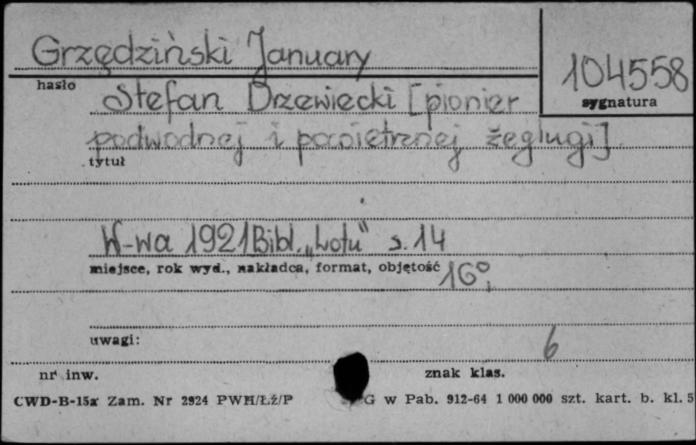 Grzędziński January
104558
hasło
sygnatura
Stefan Drzewiecki [pionier
podwodnej i powietrznej żeglugi]
tytuł
W-wa 1921 Bibl. „Lotu" s. 14
miejsce, rok wyd., nakładca, format, objętość 16°
uwagi:
6
nr inw.
znak klas.
CWD-B-15a Zam. Nr 2924 PWH/Łź/P
G w Pab. 912-64 1 000 000 szt. kart. b. kl. 5